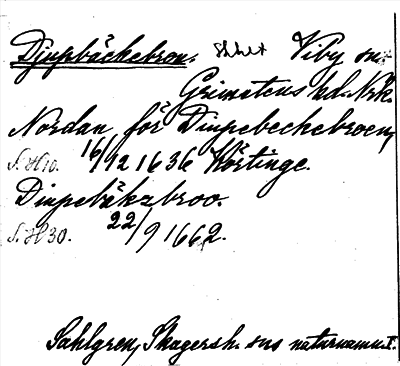 Djupbäckebron. Viby sn.
Grimstens hd. Nrk.
Nordan för Diupebeckebroen,
S. H 10. 16/12 1636 Körtinge.
Diupebäkzbroo.
S. H 30. 22/9 1662.
Sahlgren, Skagersh. sns naturnamn. I.